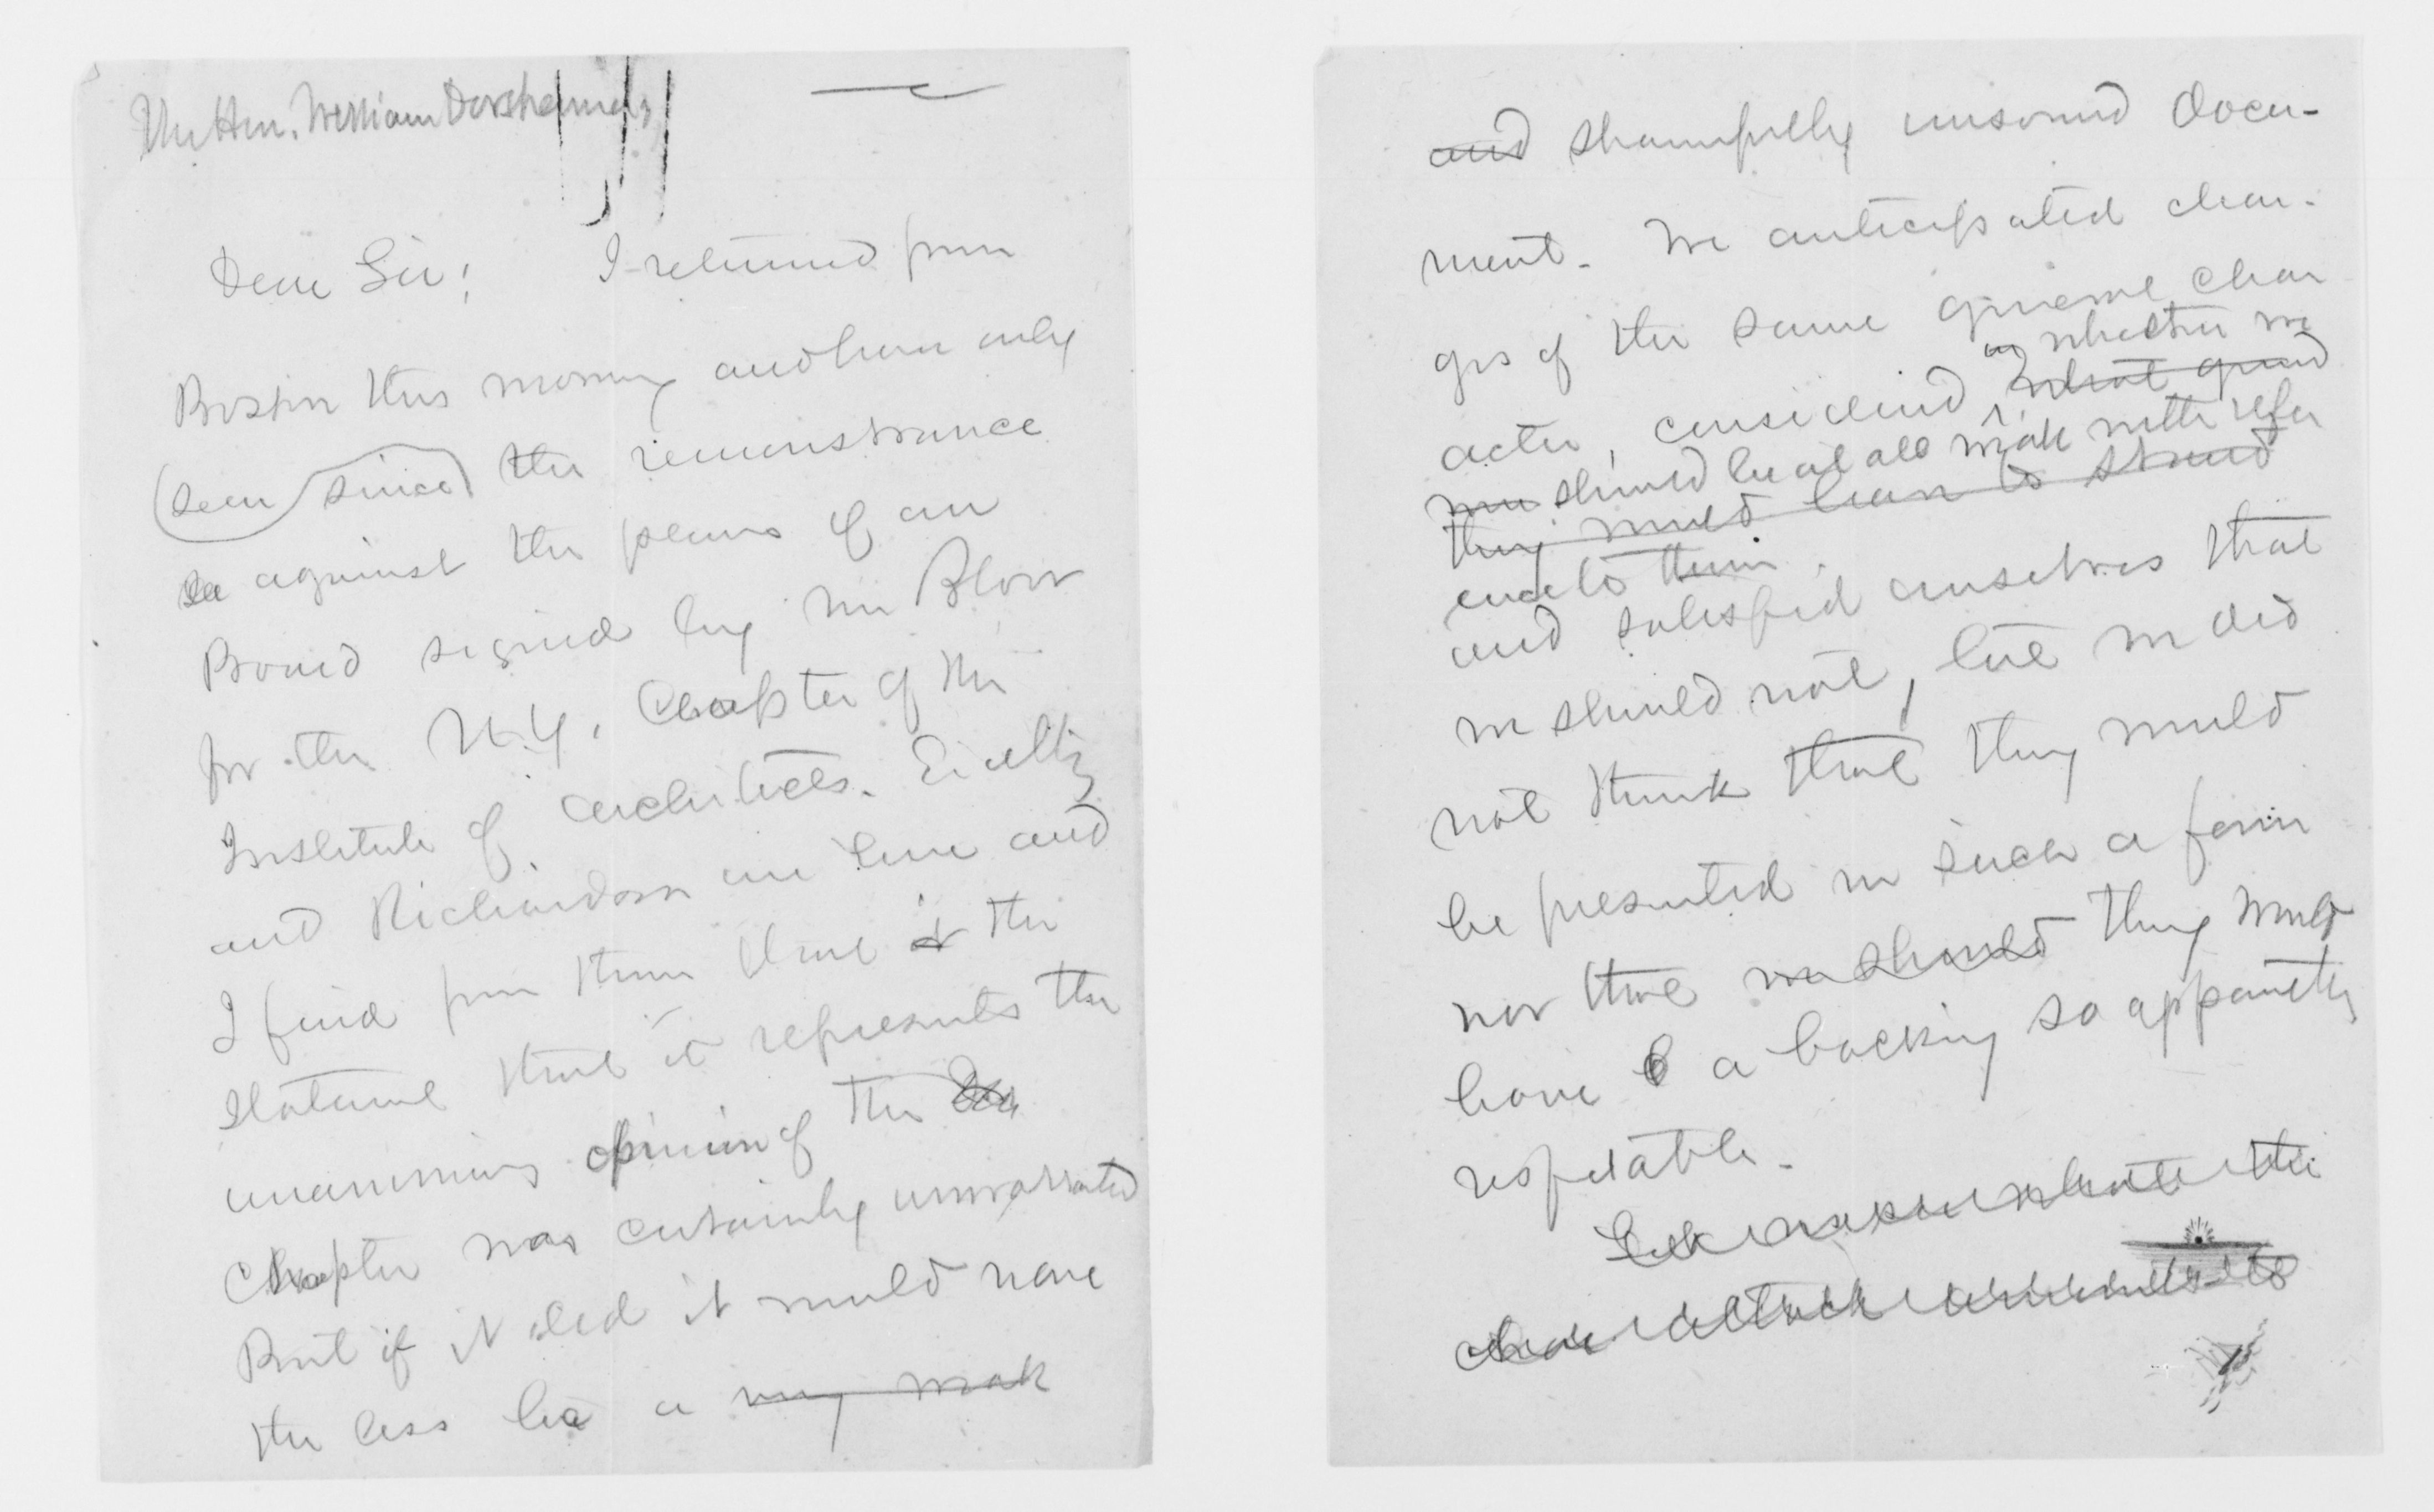 The Hon. William Dorsheimer,
Dear Sir; I returned from
Boston this morning and have only
seen since the remonstrance
against the plans of our
Board signed by Mr Bloor
for the N.Y. Chapter of the
Institute of Architects. Eidlitz
and Richardson are here and
I find from them that is the
statement that it represents the
unanimous opinion of the
Chapter was certainly unwarranted
But if it did it would none
the less be a very weak
and shamefully unsound docu-
ment. We anticipated char-
ges of the same general char
acter, considered whether we
what ground
we should be at all weak with refer
they would have to stand
ence to them
and satisfied ourselves that
we should not, but we did
not think that they would
be presented in such a form
nor that we should they would
have a backing so apparently
respectable.